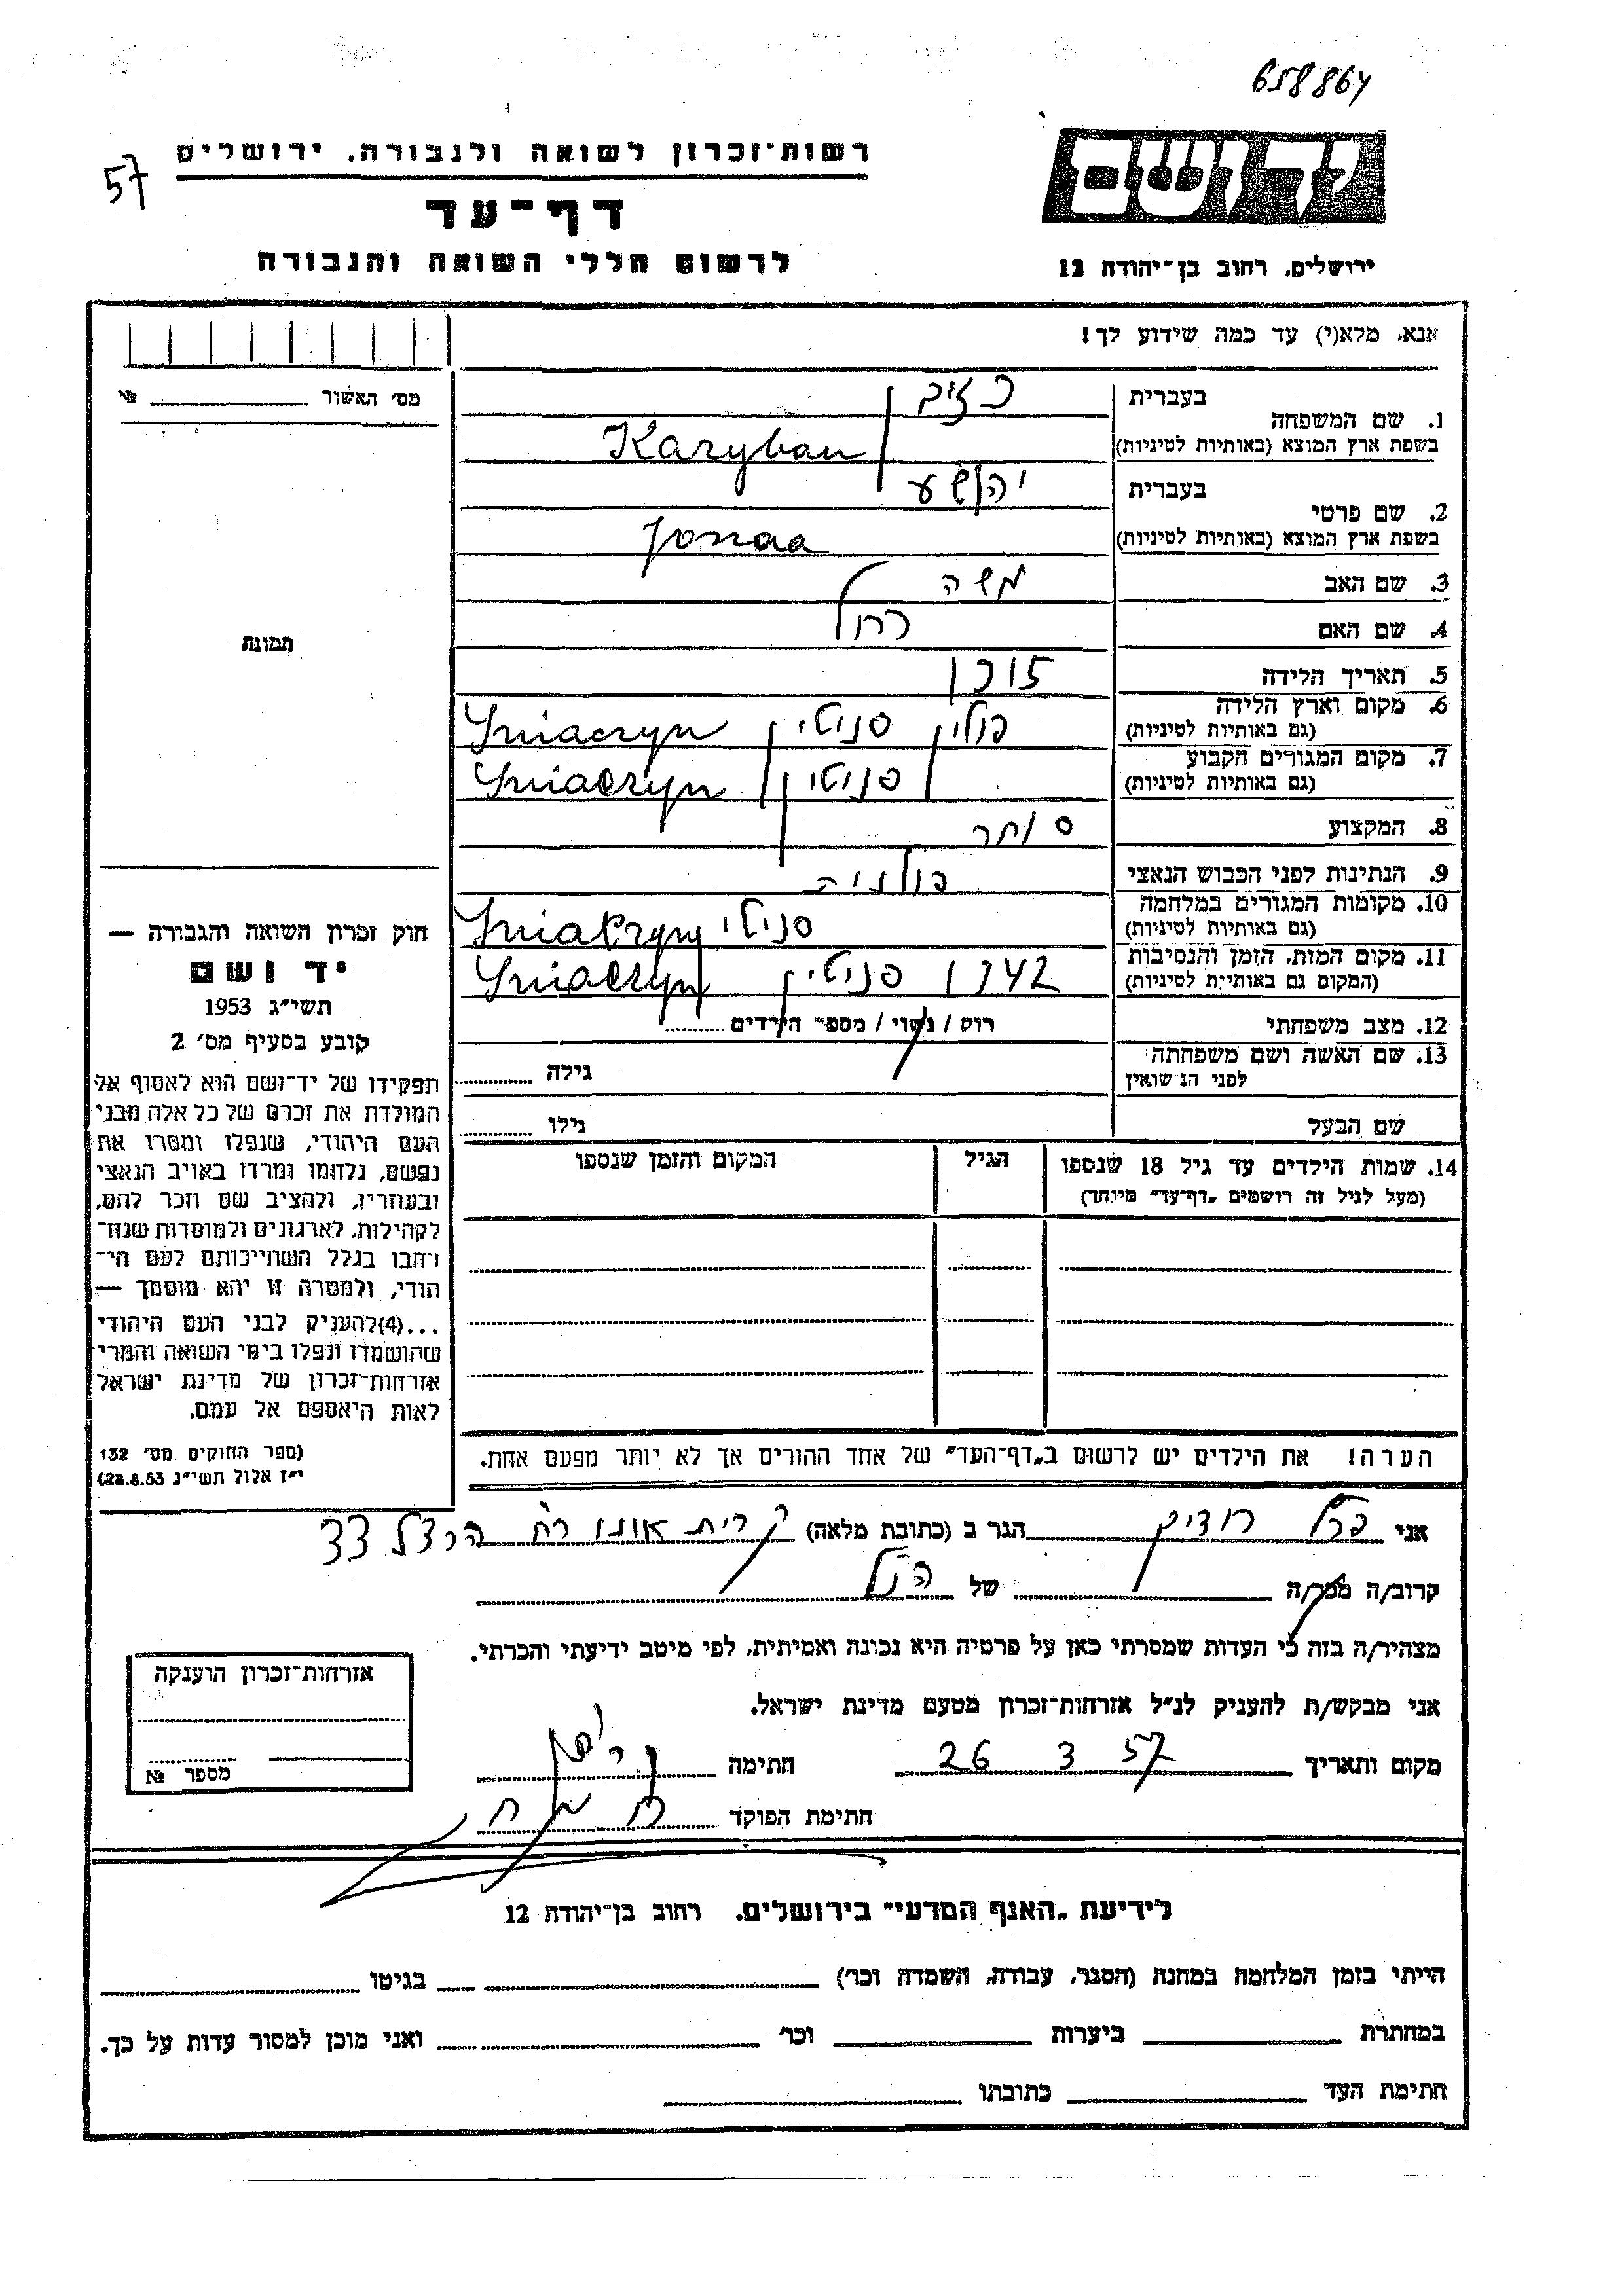 658864
57
יד ושם
רשות־זכרון לשואה ולגבורה, ירושלים
דף־עד
לרשום חללי השואה והגבורה
ירושלים, רחוב בן־יהודה 12
אנא, מלא(י) עד כמה שידוע לך!
מס׳ האשור № 
תמונה
1. שם המשפחה
בעברית
בשפת ארץ המוצא (באותיות לטיניות) Karyban
2. שם פרטי
בעברית יהושע
בשפת ארץ המוצא (באותיות לטיניות)
3. שם האב משה
4. שם האם רחל
5. תאריך הלידה זוכן
6. מקום וארץ הלידה פולין סניטין Sniaczyn
(גם באותיות לטיניות)
7. מקום המגורים הקבוע סניטין Sniaczyn
(גם באותיות לטיניות)
8. המקצוע סוחר
9. הנתינות לפני הכבוש הנאצי פולניה
10. מקומות המגורים במלחמה Sniaczyn
(גם באותיות לטיניות)
11. מקום המות, הזמן והנסיבות סניטין Sniaczyn
(המקום גם באותיות לטיניות)
12. מצב משפחתי רוק / נשוי / מספר הילדים
13. שם האשה ושם משפחתה
לפני הנשואין
גילה
שם הבעל
גילו
14. שמות הילדים עד גיל 18 שנספו
(מעל לגיל זה רושמים „דף־עד״ מיוחד)
הגיל
המקום והזמן שנספו
הערה! את הילדים יש לרשום ב„דף־העד״ של אחד ההורים אך לא יותר מפעם אחת.
חוק זכרון השואה והגבורה —
יד ושם
תשי״ג 1953
קובע בסעיף מס׳ 2
תפקידו של יד־ושם הוא לאסוף אל
המולדת את זכרם של כל אלה מבני
העם היהודי, שנפלו ומסרו את
נפשם, נלחמו ומרדו באויב הנאצי
ובעוזריו, ולהציב שם וזכר להם,
לקהילות, לארגונים ולמוסדות שנח־
רחבו בגלל השתייכותם לעם הי־
הודי, ולמטרה זו יהא מוסמך —
...(4)להעניק לבני העם היהודי
שהושמדו ונפלו בימי השואה והמרי
אזרחות־זכרון של מדינת ישראל
לאות היאספם אל עמם.
(ספר החוקים מס׳ 132
י״ז אלול תשי״ג 28.8.53)
אני פרל הגר ב (כתובת מלאה) קרית אונו רח׳ הרצל 33
קרוב/ה מכר/ה של הנ״ל
מצהיר/ה בזה כי העדות שמסרתי כאן על פרטיה היא נכונה ואמיתית, לפי מיטב ידיעתי והכרתי.
אני מבקש/ת להעניק לנ״ל אזרחות־זכרון מטעם מדינת ישראל.
מקום ותאריך 26 3 57 חתימה
חתימת הפוקד
אזרחות־זכרון הוענקה
מספר №
לידיעת „האגף המדעי״ בירושלים. רחוב בן־יהודה 12
הייתי בזמן המלחמה במחנה (הסגר, עבודה, השמדה וכו׳) בגיטו
במחתרת ביערות וכו׳ ואני מוכן למסור עדות על כך.
חתימת העד כתובתו